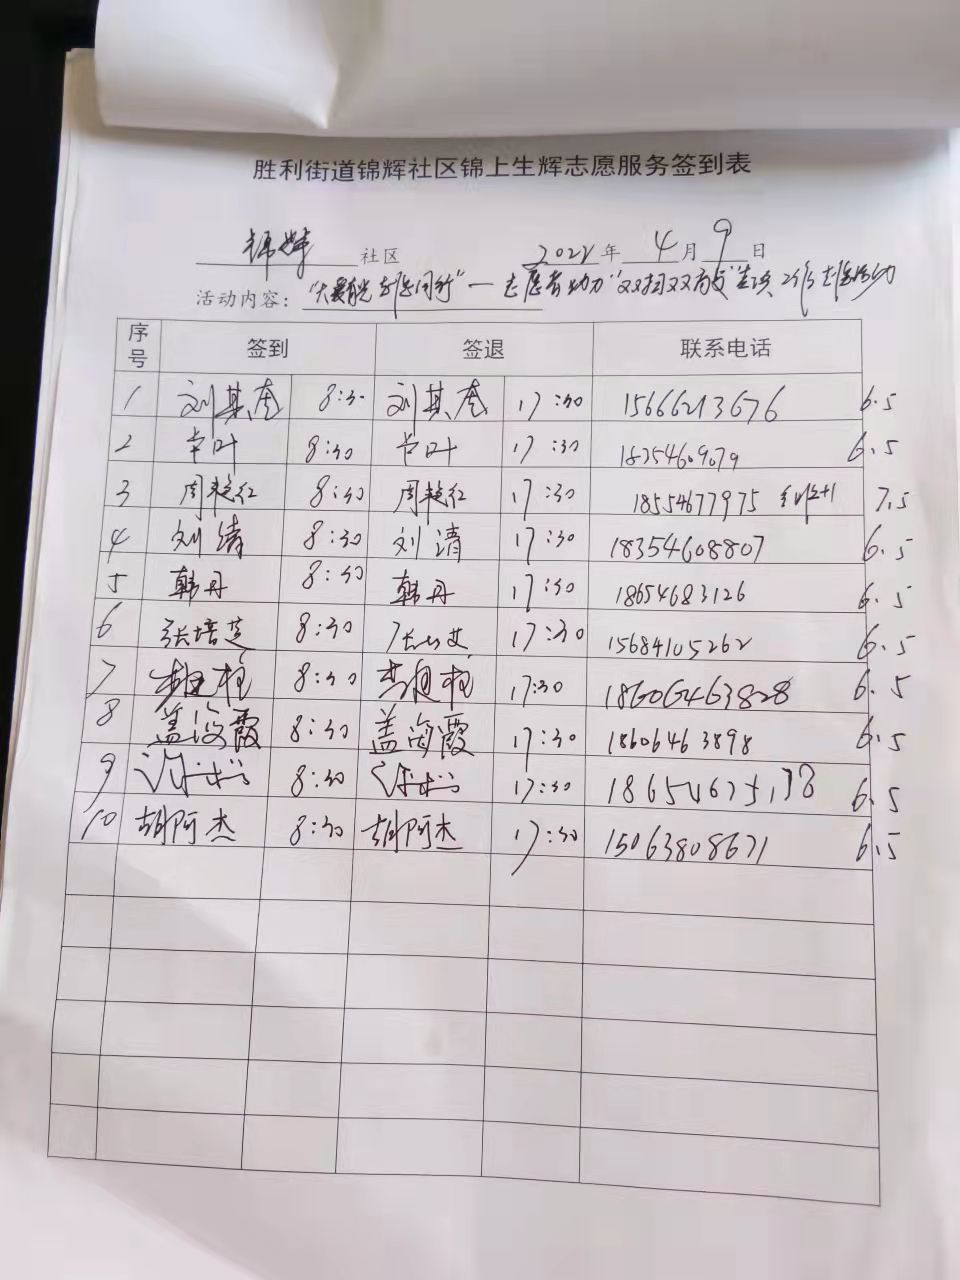 胜利街道锦辉社区锦上生辉志愿服务签到表
锦辉 社区 2022年 4月 9日
活动内容： 志愿者助力"双扫双有
序号 签到 签退 联系电话
1 刘其奎 8:30 刘其奎 17:30 15666213676 6.5
2 8:30 17:30 18754609079 6.5
3 周艳红 8:30 周艳红 17:30 18554677975 6.5 7.5
4 刘清 8:30 刘清 17:30 18354608807 6.5
5 韩丹 8:30 韩丹 17:30 18654683126 6.5
6 张培芝 8:30 17:30 15684105262 6.5
7 8:30 17:30 18606463828 6.5
8 盖海霞 8:30 盖海霞 17:30 18606463898 6.5
9 8:30 17:30 6.5
10 胡阿杰 8:30 胡阿杰 17:30 15063808671 6.5